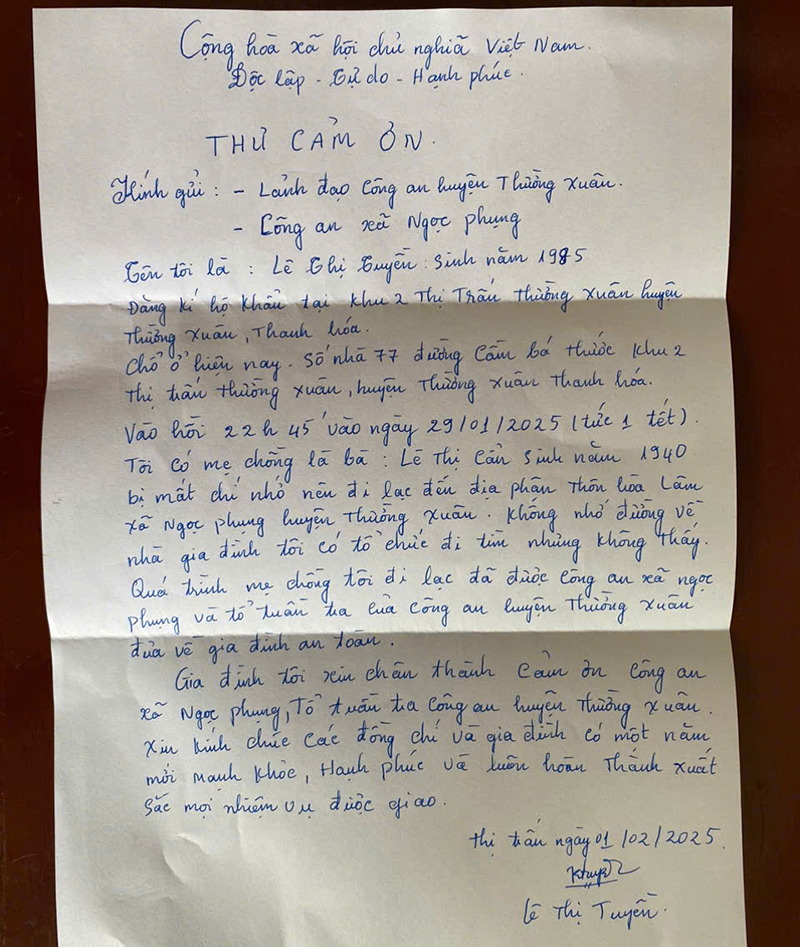 Cộng hoà xã hội chủ nghĩa Việt Nam.
Độc lập - Tự do - Hạnh phúc.
THƯ CẢM ƠN.
Kính gửi : - Lảnh đạo Công an huyện Thường Xuân.
- Công an xã Ngọc phụng
Tên tôi là : Lê Thị Tuyền : Sinh năm 1985
Đăng kí hộ khẩu tại khu 2 Thị Trấn Thường Xuân huyện
Thường Xuân, Thanh hóa.
Chổ ở hiện nay. Số nhà 77 đường Cầm bá thước khu 2
Thị trấn thường xuân, huyện Thường Xuân Thanh hóa.
Vào hồi 22h 45' vào ngày 29/01/2025 (tức 1 tết).
Tôi có mẹ chồng là bà : Lê Thị Cần Sinh năm 1940
bị mất chí nhớ nên đi lạc đến địa phận thôn hòa Lâm
xã Ngọc phụng huyện Thường Xuân. không nhớ đường về
nhà gia đình tôi có tổ chức đi tìm nhưng không thấy.
Quá trình mẹ chồng tôi đi lạc đã được công an xã ngọc
phụng và tổ tuần tra của Công an huyện Thường Xuân
đưa về gia đình an toàn.
Gia đình tôi xin chân thành cảm ơn công an
xã Ngọc phụng, Tổ tuần tra công an huyện thường xuân.
Xin kính chúc các đồng chí và gia đình có một năm
mới mạnh khỏe, Hạnh phúc và luôn hoàn thành xuất
sắc mọi nhiệm vụ được giao.
Thị trấn ngày 01/02/2025.
Lê Thị Tuyền.